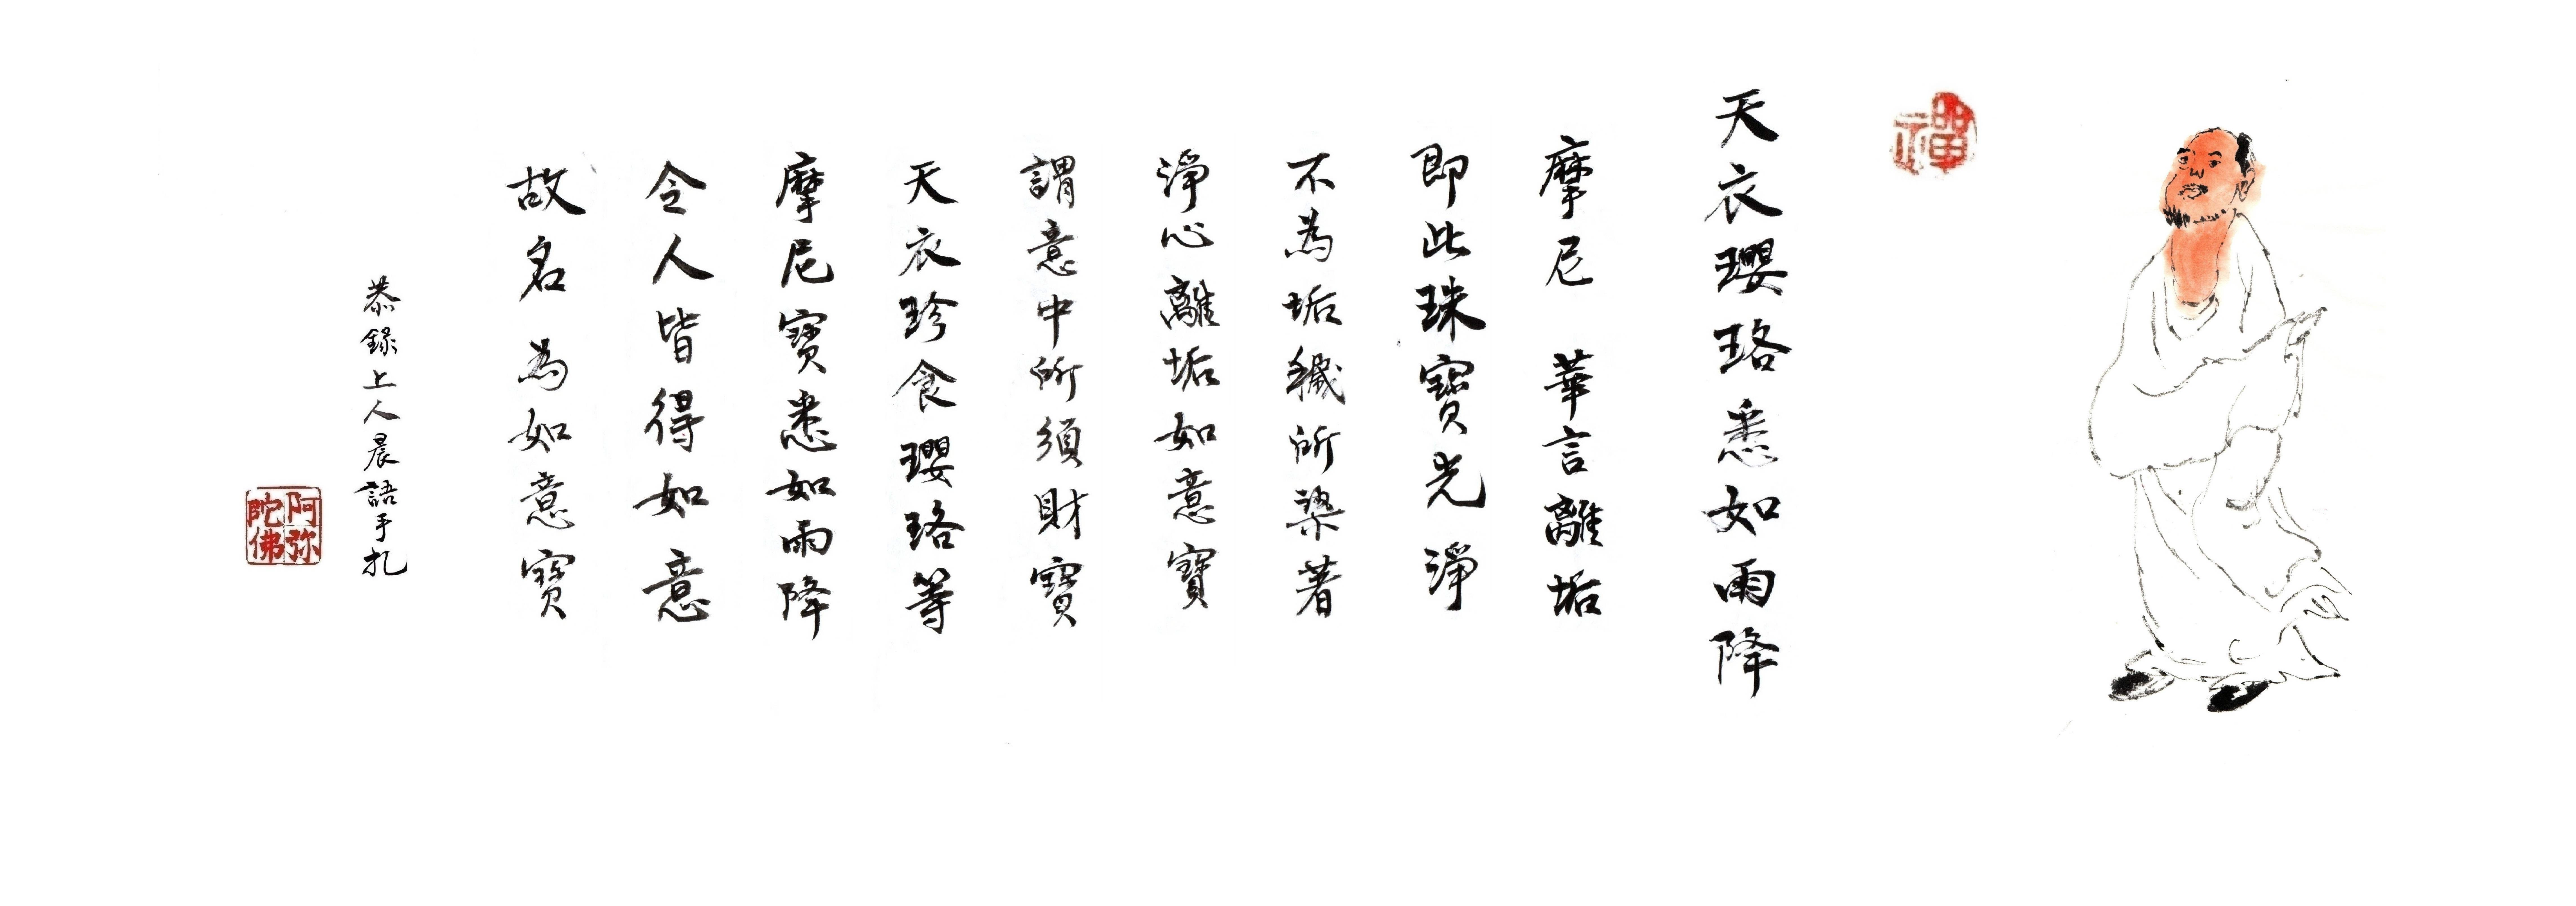 禪
天衣瓔珞悉如雨降
摩尼 華言離垢
即此珠寶光淨
不為垢穢所染著
淨心離垢如意寶
謂意中所須財寶
天衣珍食瓔珞等
摩尼寶悉如雨降
令人皆得如意
故名為如意寶
恭錄上人晨語手扎
阿弥陀佛